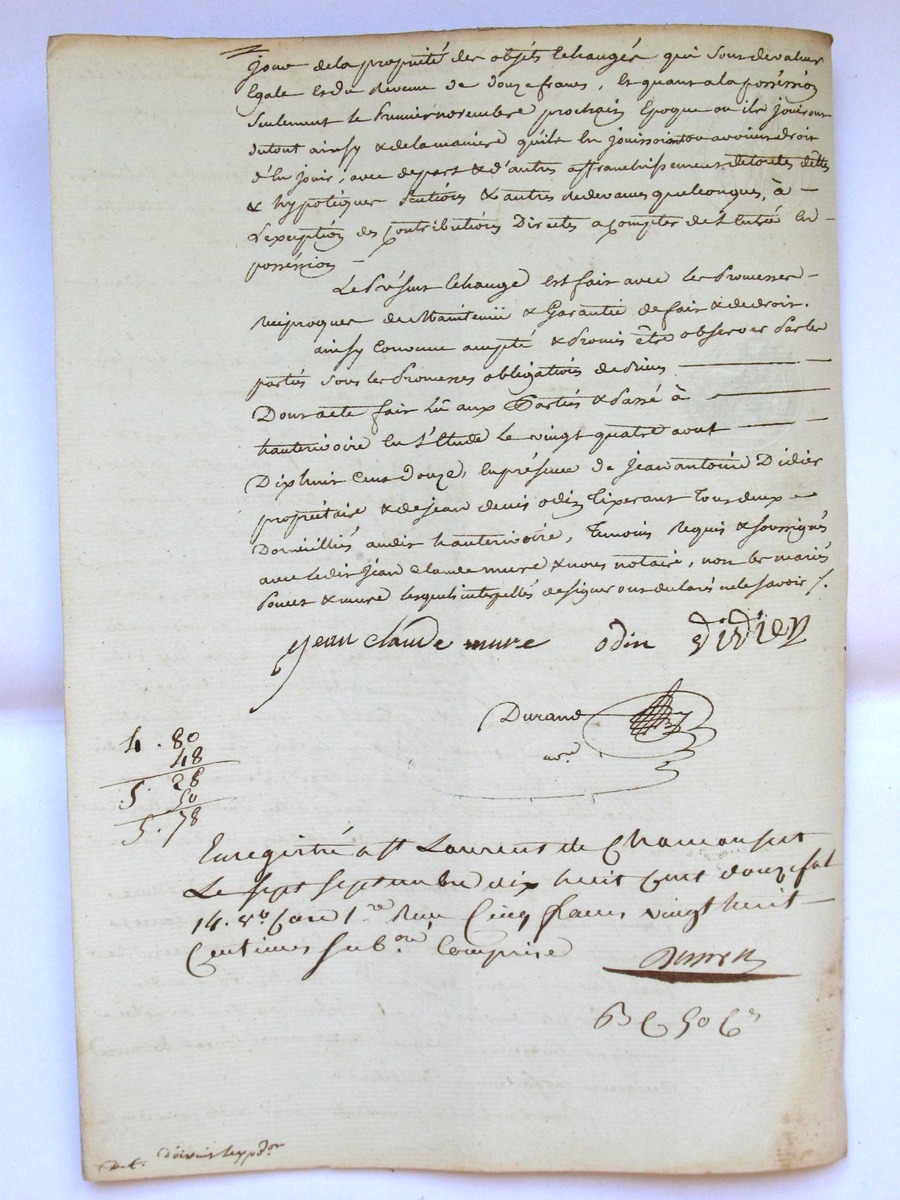 jour de la propriété des objets Echangés qui sont de valeur
Egale et du Revenu de douze francs, Et quant a la possession
seulement le premier novembre prochain Epoque ou ils jouiront
du tout ainsy & de la maniere qu'ils En jouissoient ou avoient droit
d'En jouir, avec depart & d'autres affranchissement de toutes dettes
& hypotêques pentions & autres redevances quelconques, à
L'exception des Contributions Directes a Compter de l'Entrée En
possession
Le Présent Echange est fait avec les Promesses
Réciproques de Maintenüe & Garantie de fait & de droit.
ainsy Convenu accepté & Promis être observer par les
parties sous les Promesses obligations de biens
Dont acte fait Lû aux Parties & Passé à
hauterivoire En l'Etude Le vingt quatre aout
Dix huit Cent Douze, En présence de Jean antoine Didier
propriétaire & de Jean denis odin tixerant tous deux
Domiciliés audit hauterivoire, Temoins Requis & soussignés
avec ledit Jean Claude mure & nous notaire, non les mariés
Poncet & mure lesquels interpellés de signer ont declaré ne le savoir /.
jean claude mure odin didier
Durand
nore
4. 80
48
5. 28
50
5. 78
Enregistré a st Laurent de Chamousset
Le sept septembre dix huit Cent douze fol
14. vo Case 1re Reçu Cinq francs vingt huit
Centimes subon Comprise
50 Cs